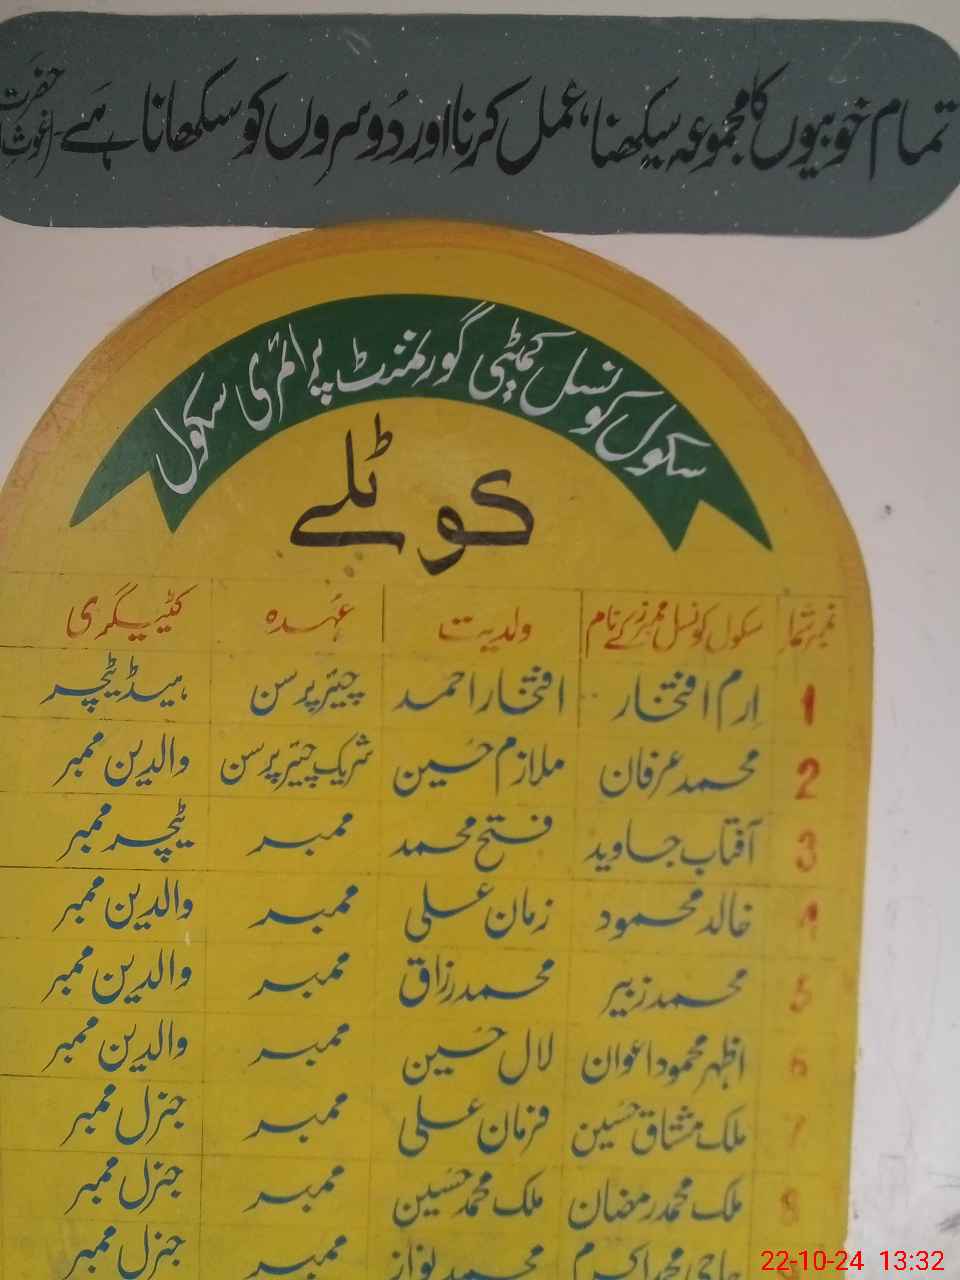 تمام خوبیوں کا مجموعہ سیکھنا، عمل کرنا اور دُوسروں کو سکھانا ہے۔ حضرت
سکول کونسل کمیٹی گورنمنٹ پرائمری سکول
کوٹلے
نمبر شمار سکول کونسل ممبرز کے نام ولدیت عُہدہ کٹیگری
1 اِرم افتخار افتخار احمد چیئرپرسن ہیڈ ٹیچر
2 محمد عرفان ملازم حسین شریک چیئرپرسن والدین ممبر
3 آفتاب جاوید فتح محمد ممبر ٹیچر ممبر
4 خالد محمود زمان علی ممبر والدین ممبر
5 محمد زبیر محمد رزاق ممبر والدین ممبر
6 اظہر محمود اعوان لال حسین ممبر والدین ممبر
7 ملک مشتاق حسین فرمان علی ممبر جنرل ممبر
8 ملک محمد رمضان ملک محمد حسین ممبر جنرل ممبر
حاجی محمد اکرم محمد نواز ممبر جنرل ممبر
22-10-24 13:32